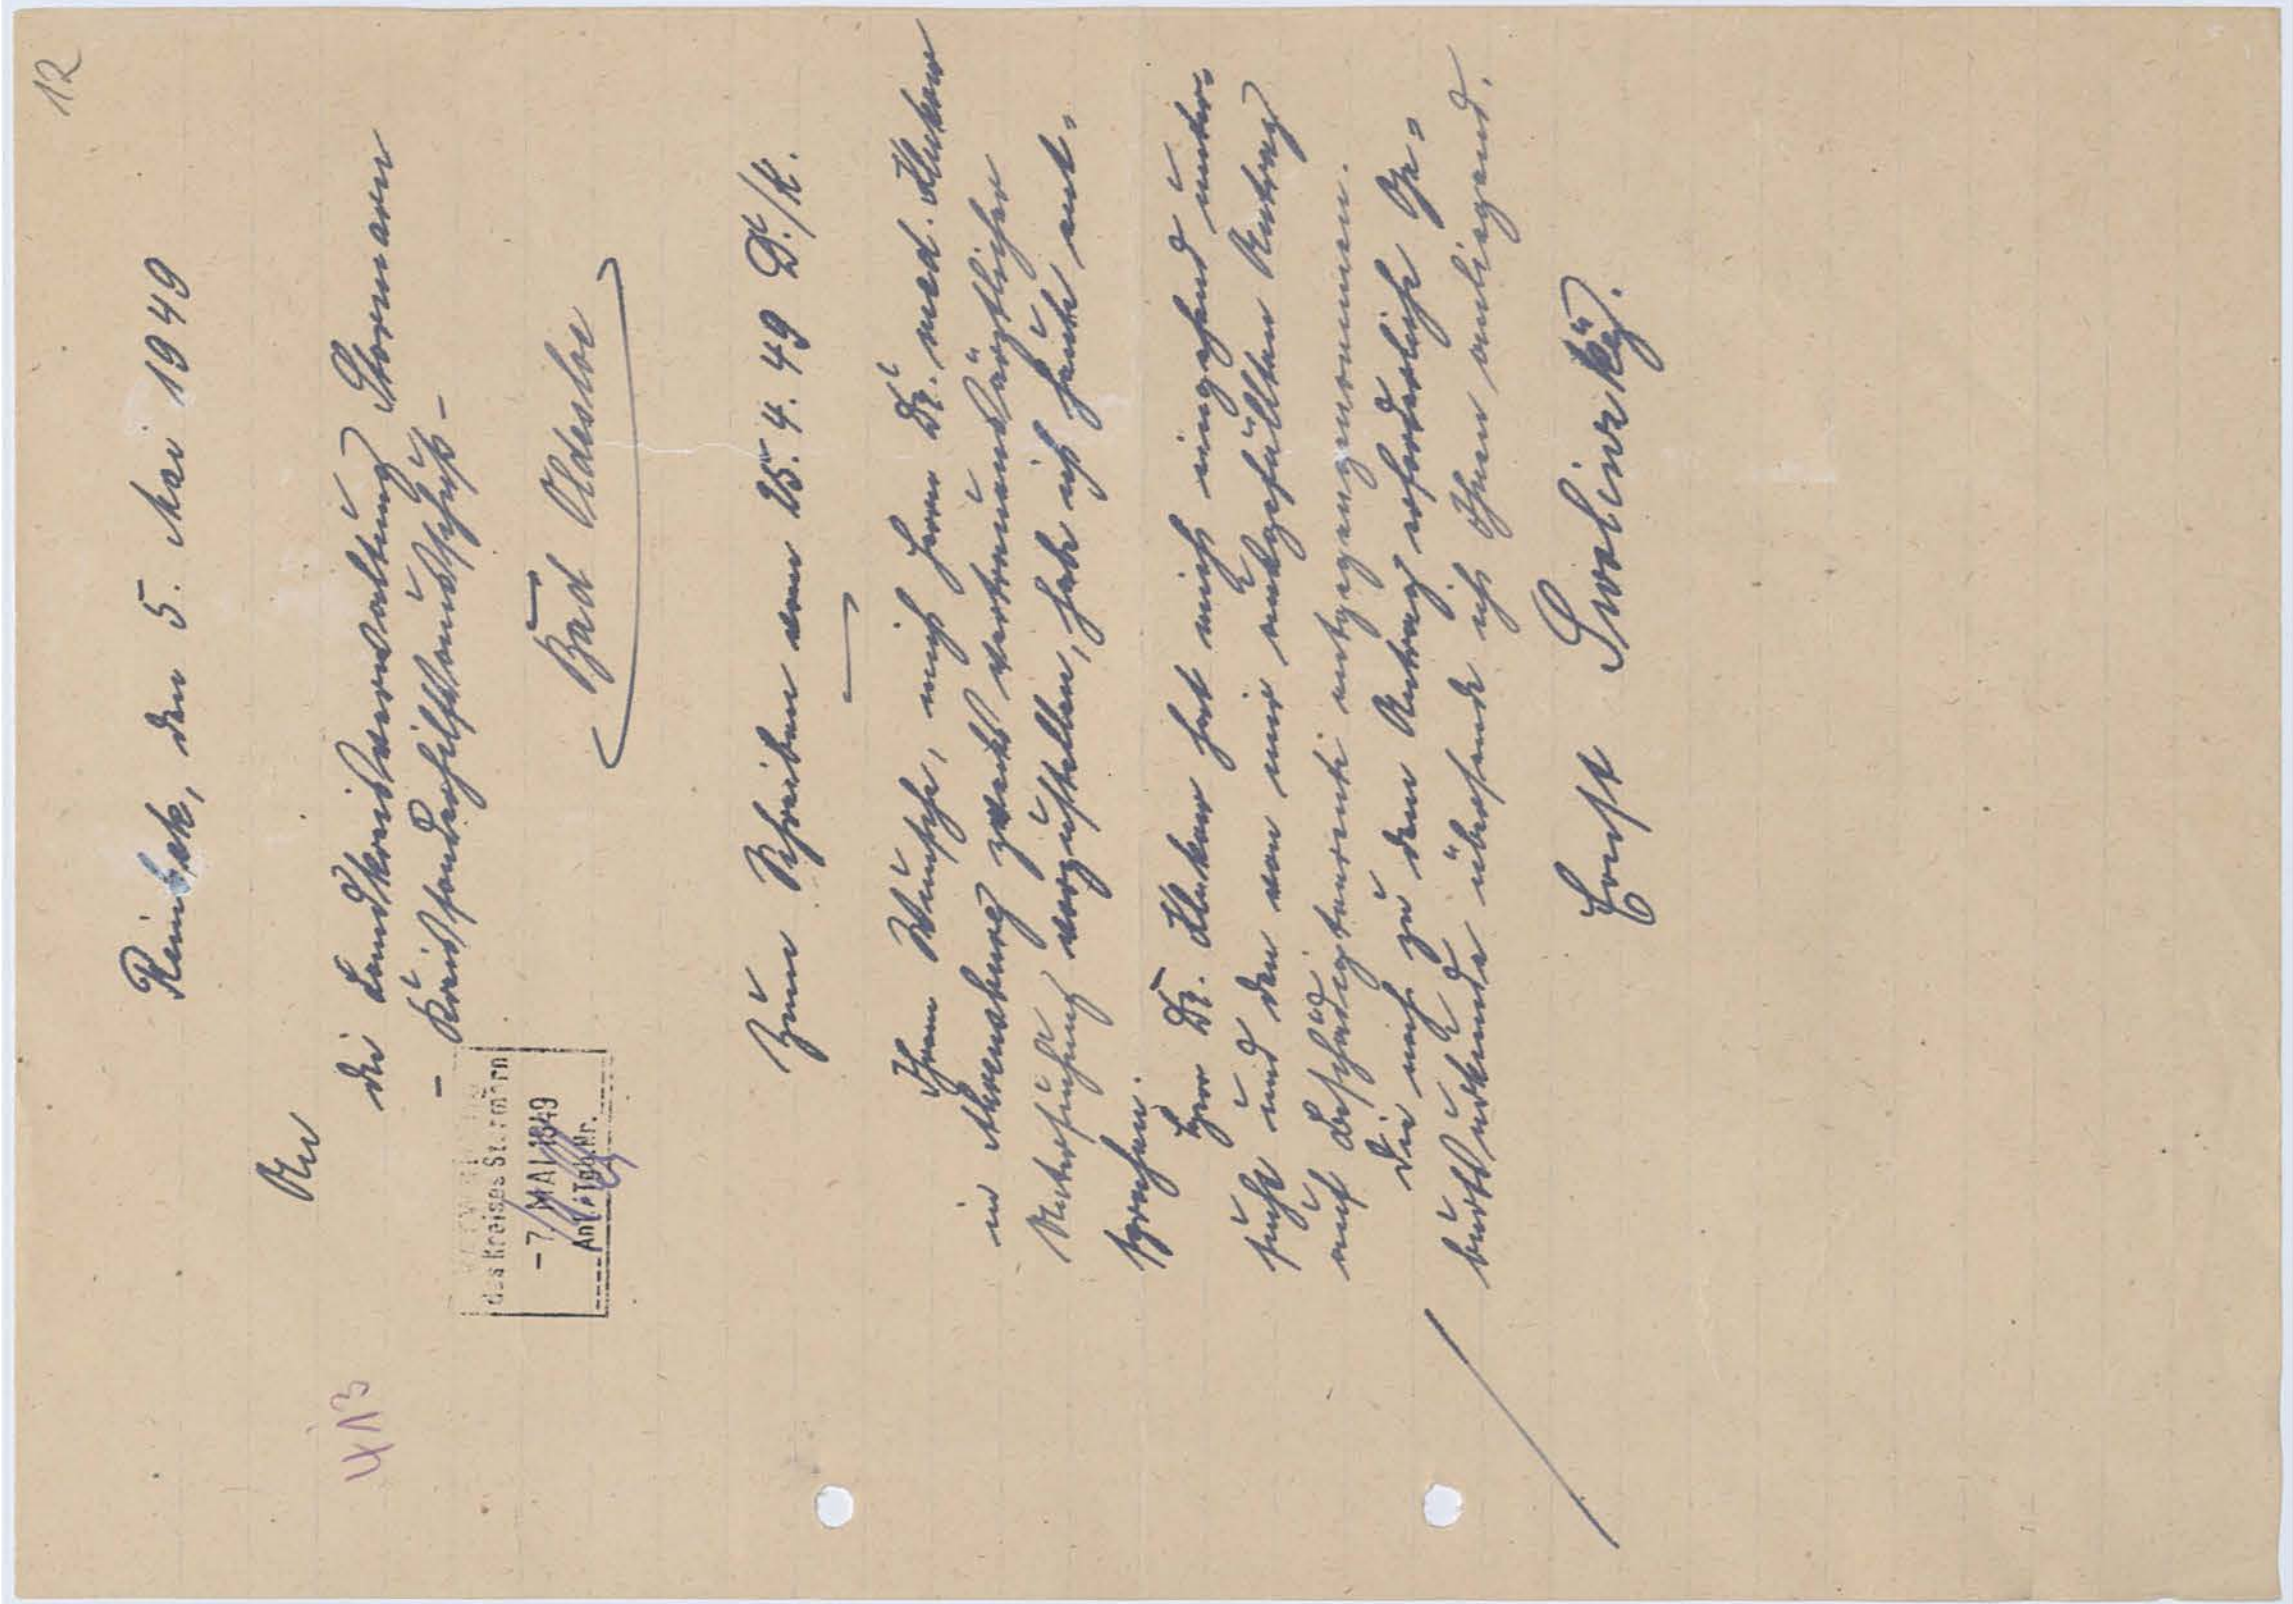 12
Reinbek, den 5. Mai 1949
An
die Landkreisverwaltung Stormarn
- Kreissonderhilfsausschuß -
Bad Oldesloe
413
des Kreises Stormarn
- 7. MAI 1949
Anl.: Tgb.Nr.
Zum Schreiben vom 25. 4. 49 D./K.
Ihrem Wunsche, mich Herrn Dr. med.
in Ahrensburg zwecks vertrauensärztlicher
Untersuchung vorzustellen, habe ich heute ent-
sprochen.
Herr Dr. hat mich eingehend unter-
sucht und den von mir ausgefüllten Antrag
auf Beschädigtenrente entgegengenommen.
Die noch zu dem Antrag erforderliche Ge-
burtsurkunde übersende ich Ihnen anliegend.
Ernst